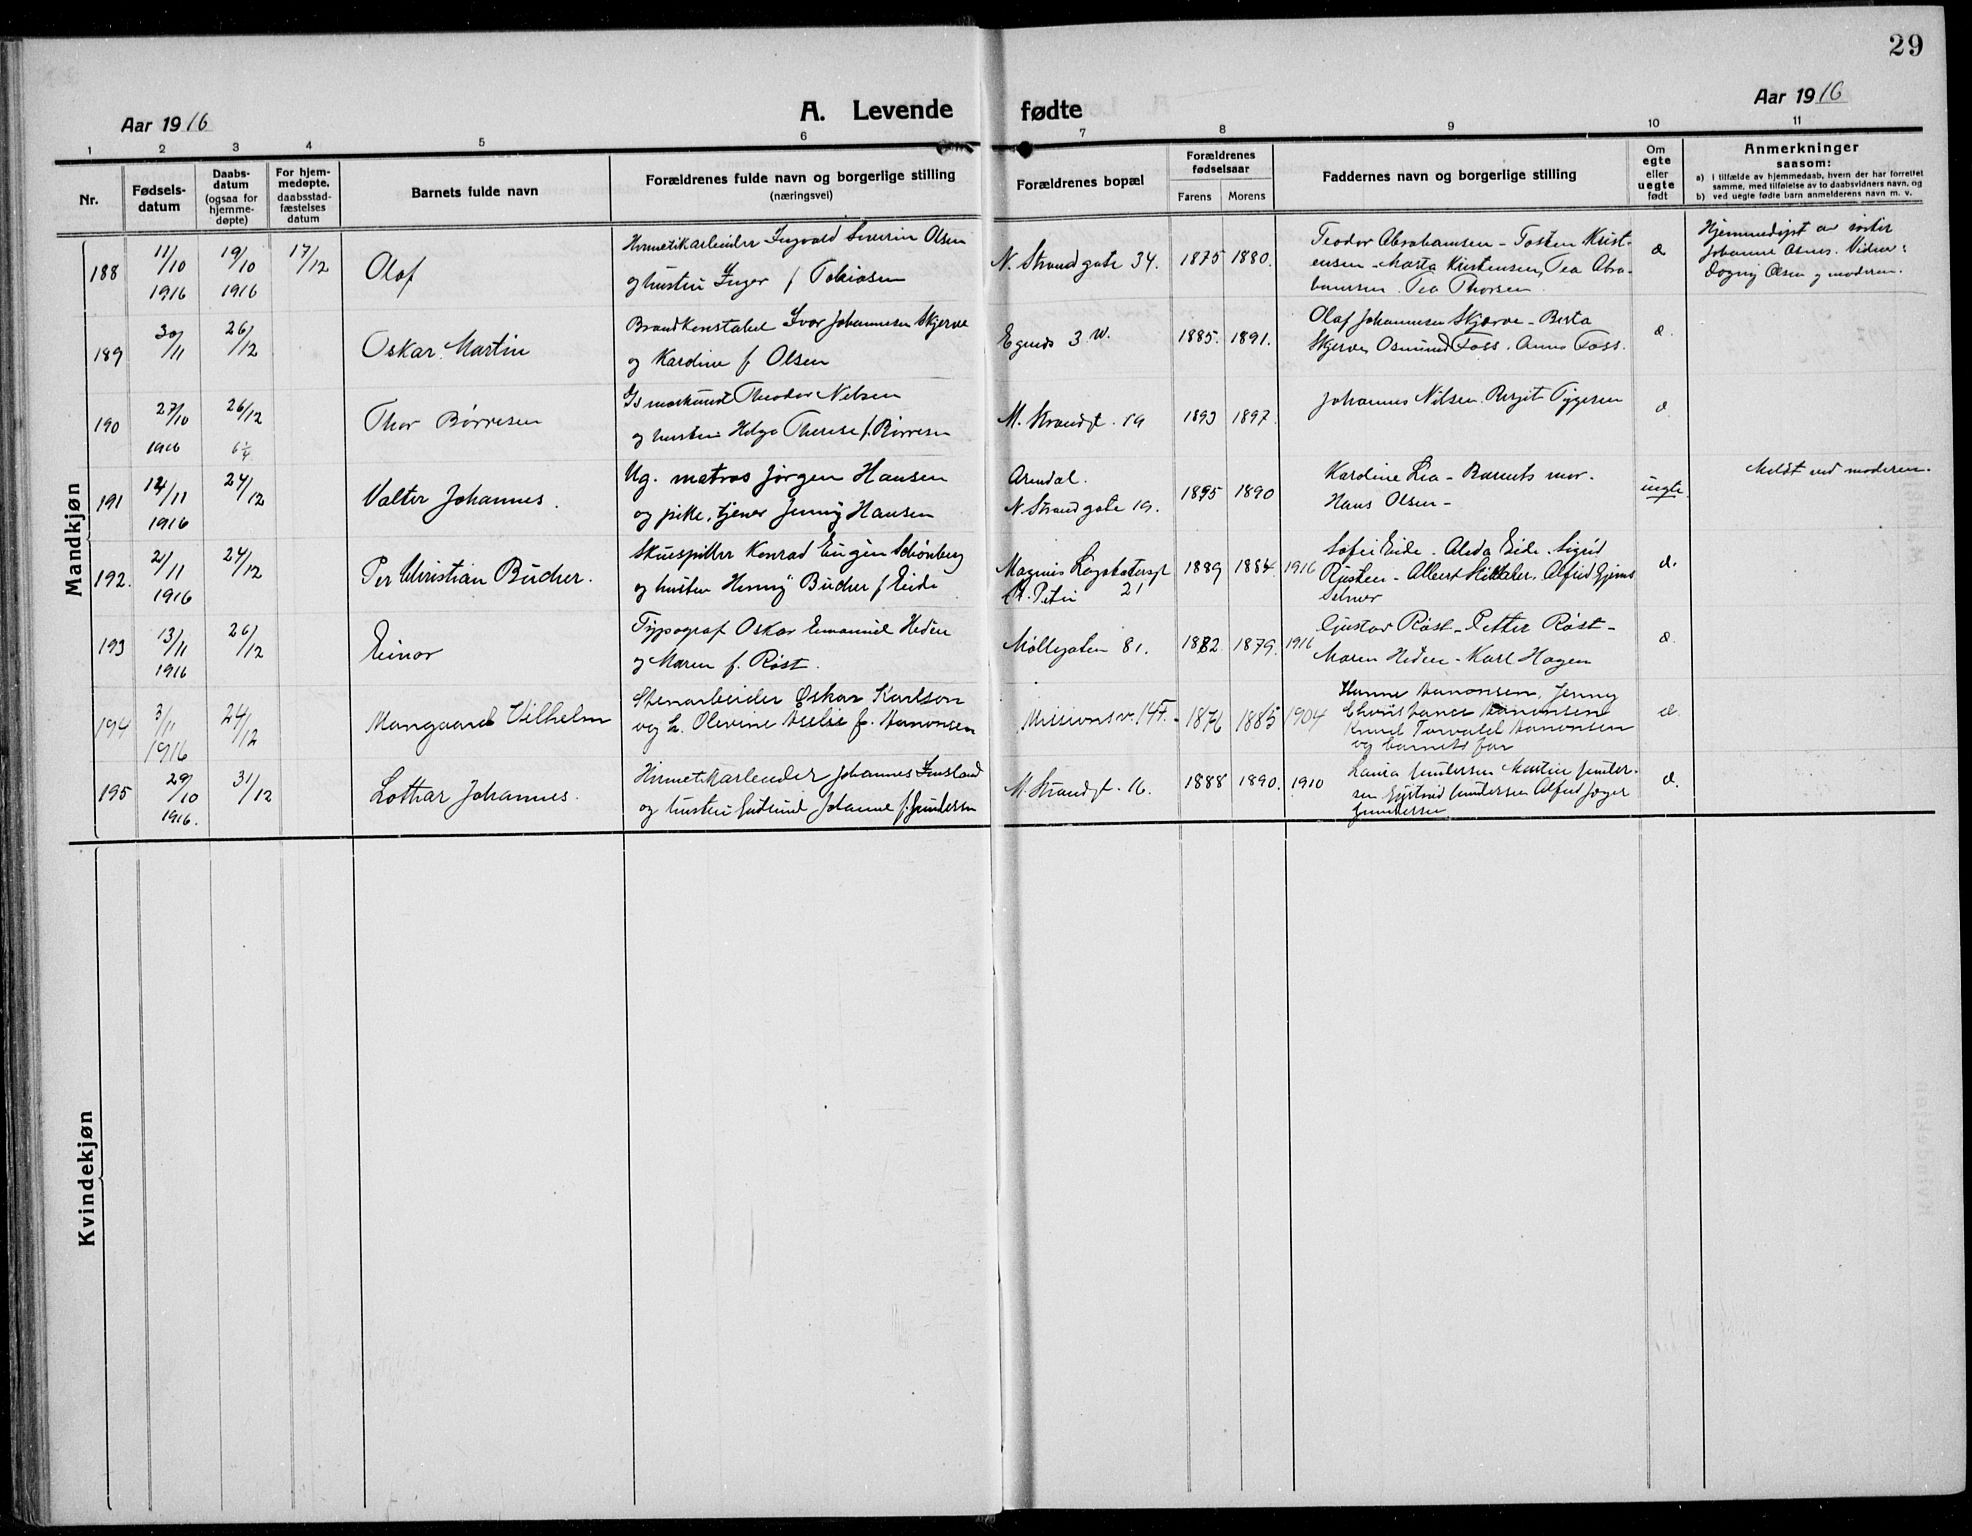 29
Aar 1916
A. Levende fødte
Aar 1916
1 2 3 4 5 6 7 8 9 10 11
Nr.
Fødsels-
datum
Daabs-
datum
(ogsaa for
hjemme-
døpte)
For hjem-
medøpte,
daabsstad-
fæstelses
datum
Barnets fulde navn
Forældrenes fulde navn og borgerlige stilling
(næringsvei)
Forældrenes bopæl
Forældrenes
fødselsaar
Farens Morens
Faddernes navn og borgerlige stilling
Om
egte
eller
uegte
født
Anmerkninger
saasom:
a) i tilfælde av hjemmedaab, hvem der har forrettet
samme, med tilføielse av to daabsvidners navn, og
b) ved uegte fødte barn anmelderens navn m. v.
Mandkjøn
188 11/10 1916 19/10 1916 17/12 Olaf
Hermetikarbeider Ingvald Severin Olsen
og hustru Inger f Tobiasen
N. Strandgate 34. 1875 1880.
Teodor Abrahamsen - Krist-
ensen - Marta Kristensen, Tea Abra-
hamsen. Tea Thorsen.
Hjemmedøpt av
Johanne
og moderen.
189 30/11 26/12 Oskar Martin
Brandkonstabel Ivar Johannesen Skjerve
og Kardine f Olsen
3 W. 1885. 1891.
Olaf Johannesen Skjerve - Berta
Skjerve, Osmund Foss. Anna Foss.
190 27/10 1916 26/12 Thor Børresen
Theodor Nilsen
og hustru Helga Therese f. Børresen
N. Strandgt. 19 1893 1897.
Johannes Nilsen. Birgit
191 14/11 1916 24/12 Valter Johannes.
Ug. matros Jørgen Hansen
og pike, tjener Jenny Hansen
Arendal.
N. Strandgate 19. 1895 1890
Kardine Lea - Barnets mor.
Hans Olsen -
uegte
Meldt ved moderen.
192. 21/11 1916 24/12 Per Christian Bucher.
Skuespiller Konrad Eugén Schönberg
og hustru Henny Bucher f Eide
Magnus Lagabøtersgt
St. Petri 21 1889 1884. 1916
Sofie Eide. Alida Eide. Sigrid
- Albert
193 13/11 1916 26/12 Einar
Typograf Oskar Emanuel Hedén
og Maren f. Røst.
Møllegaten 81. 1882 1879. 1916
Gustav Røst - Petter Røst -
Maren Heden - Karl Hagen
194 3/11 1916 24/12 Vilhelm
Stenarbeider Oskar Karlson
og h. Olevine f. Aanonsen
Missionsv. 14F. 1876 1885 1904
Hanne Aanonsen, Jenny
Aanonsen
Knud Torvald Aanonsen
og barnets far
195 29/10 1916. 31/12 Lothar Johannes.
Hermetikarbeider Johannes
og hustru Gudrund Johanne f. Gundersen
N. Strandgt. 16. 1888 1890. 1910
Laura Gundersen Martin Gunder-
sen Gundersen Alfred Jæger
Gundersen
Kvindekjøn